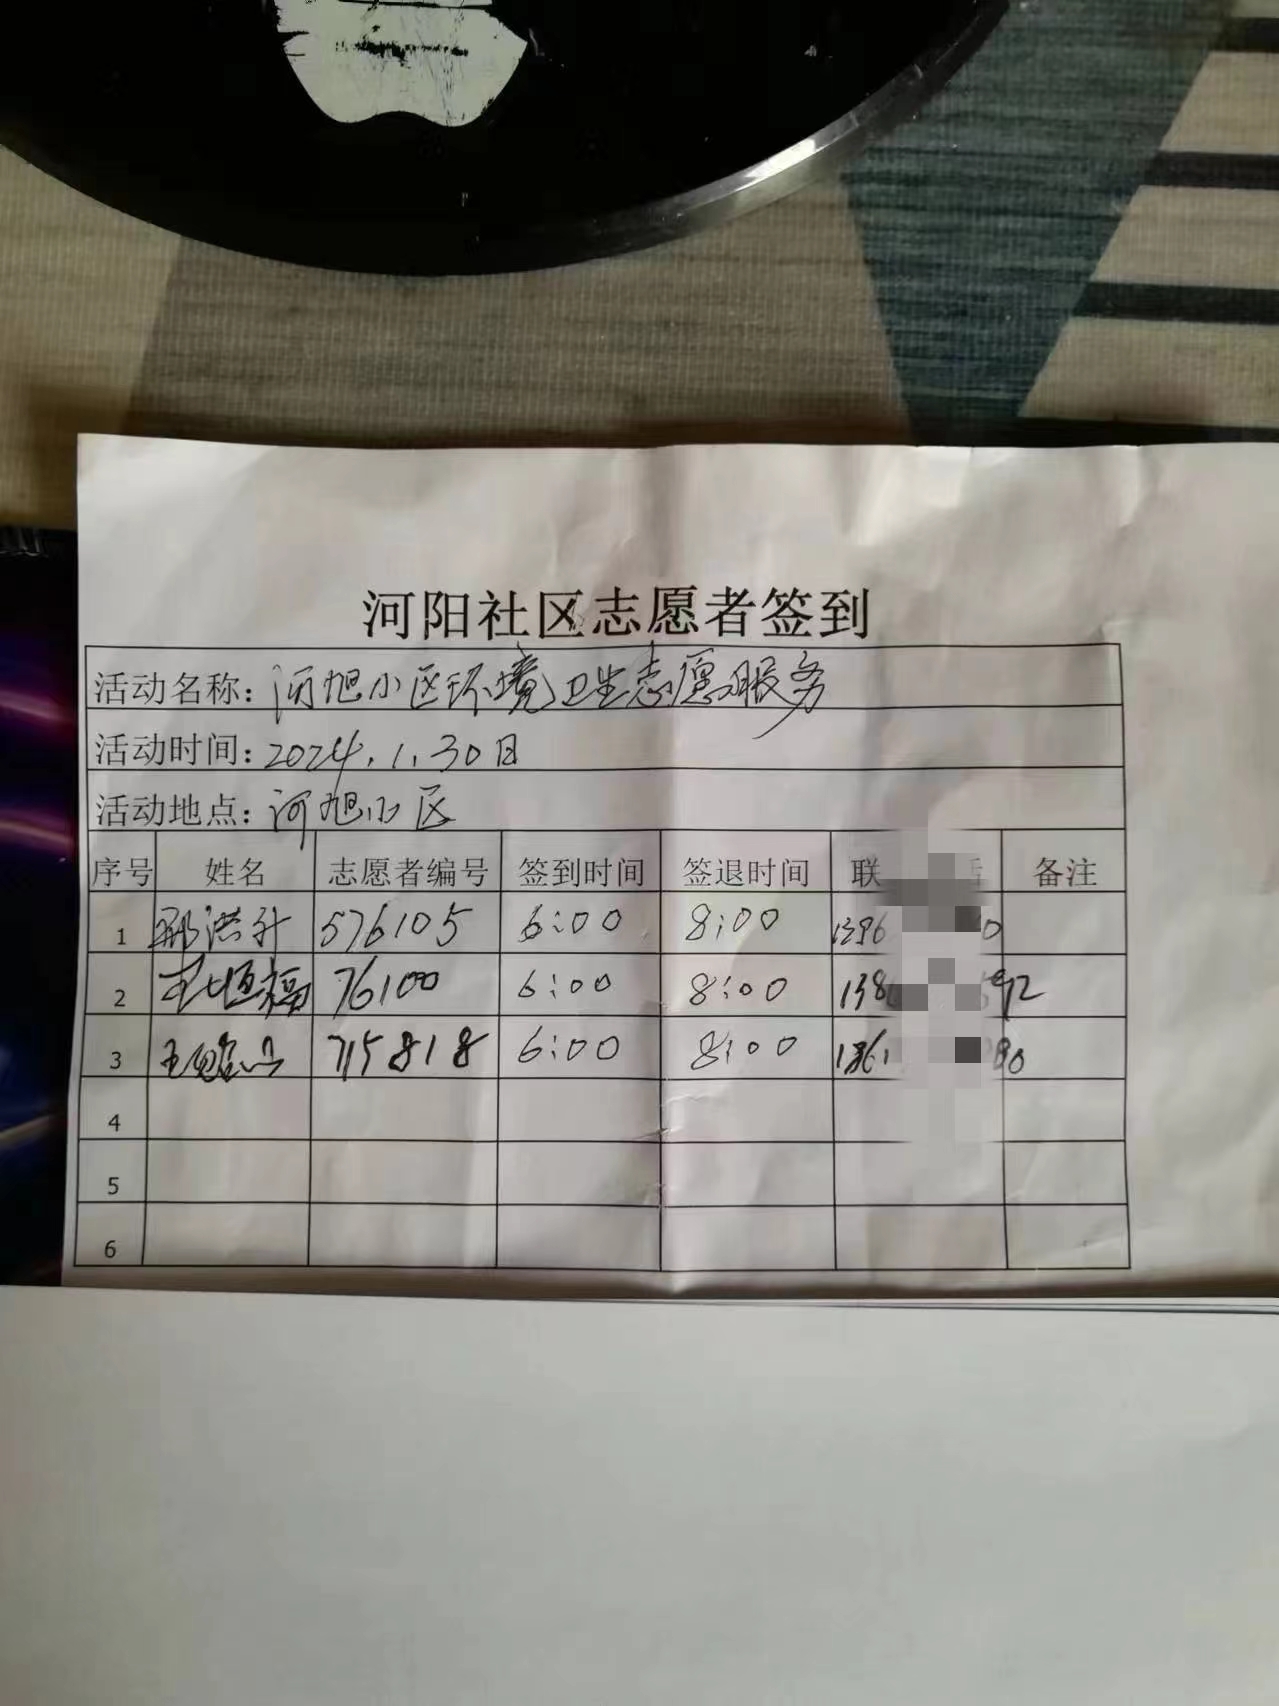 河阳社区志愿者签到
活动名称:河旭小区环境卫生志愿服务
活动时间:2024.1.30日
活动地点:河旭小区
序号 姓名 志愿者编号 签到时间 签退时间 联 备注
1 邢洪升 576105 6:00 8:00
2 恒福 76100 6:00 8:00 138 92
3 王 715818 6:00 8:00 1361 80
4
5
6